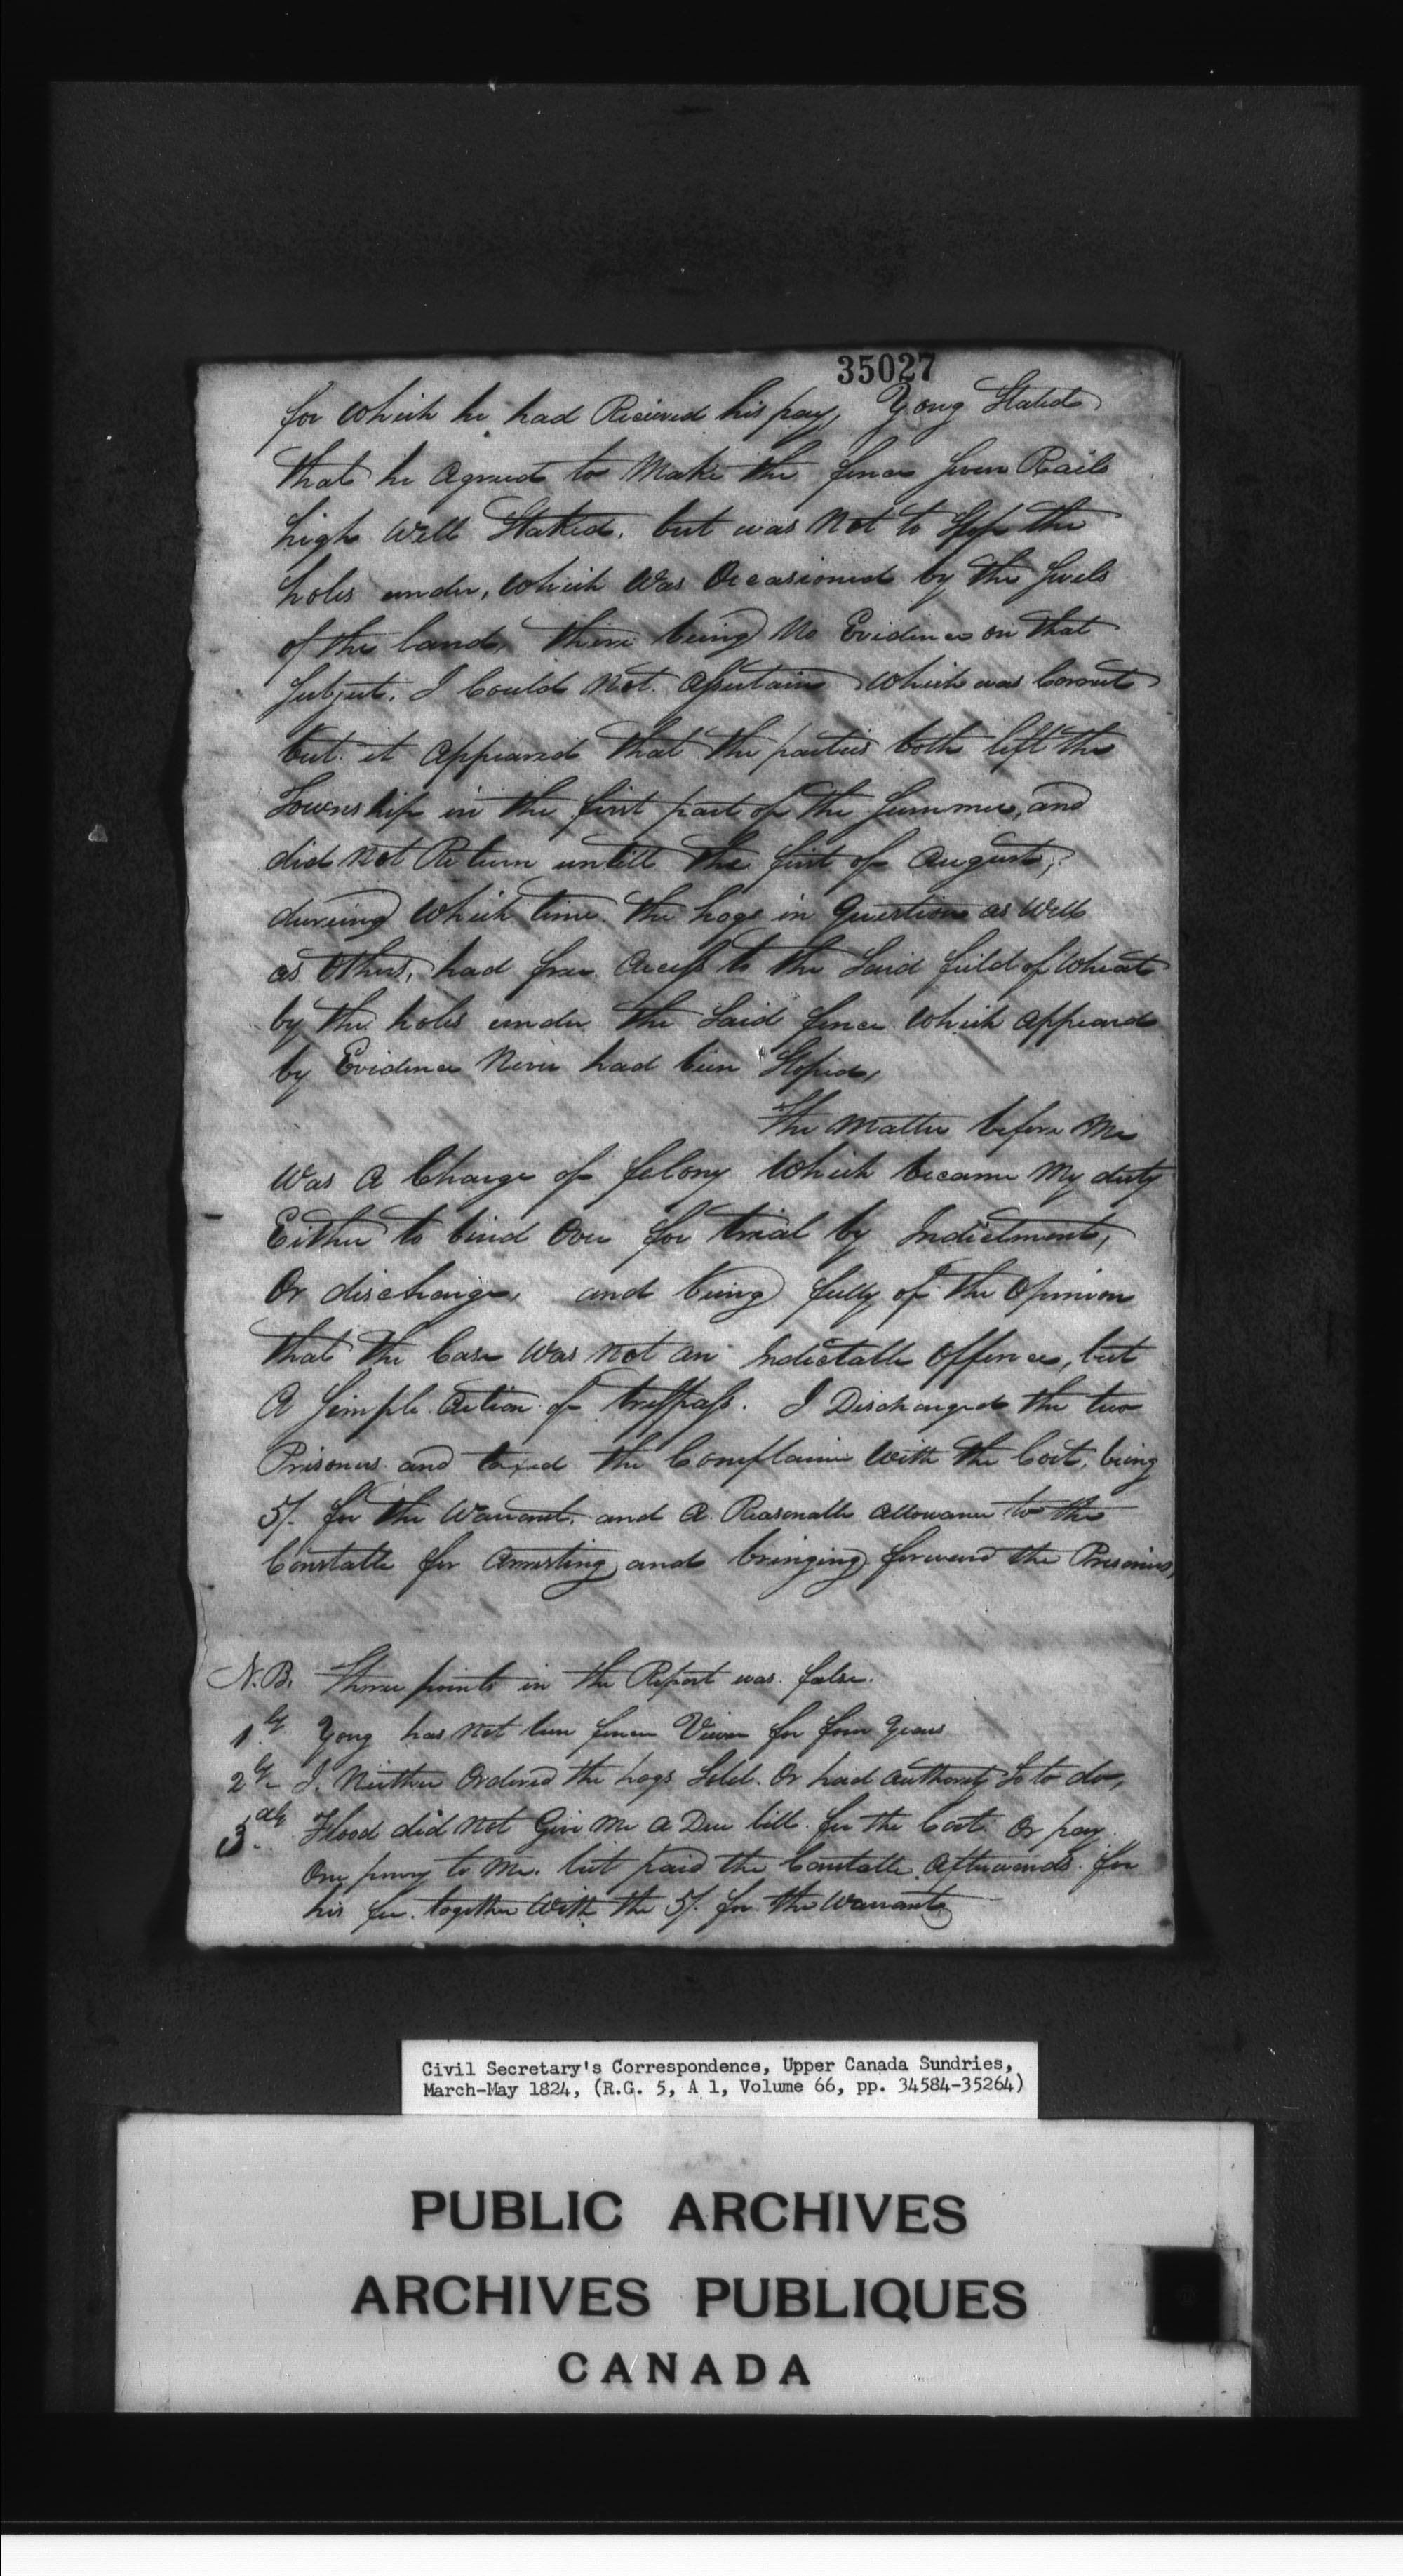 35027
for which he had Recieved his pay, Yong Stated
that he agreed to Make the fence Seven Rails
high well Staked, but was Not to Stop the
holes under, which was Occasioned by the
of the land, there being No Evidence on that
Subject, I Could Not assertain which was Correct
but it appeared that the parties both left the
Township in the first part of the Summer, and
did Not Return untill the first of August,
dureing which time the hogs in Question as well
as Others, had free access to the Said field of wheat
by the holes under the Said fence which appeard
by Evidence Never had been Stoped,
The Matter before Me
was a Charge of felony which became My duty
Either to bind Over for trial by Indictment,
Or discharge, and being fully of the Opinion
that the Case was not an Indictable Offence, but
A Simple action of tresspass. I Discharged the two
Prisoners and taxed the Complaint with the Cost, being
5/- for the Warrant, and a Reasonable allowance to the
Constable for arresting and bringing forward the Prisoners,
N.B. Three points in the Report was false.
1.ly Yong has Not been fence Viewer for four years
2ly I Neither Ordered the hogs Sold. Or had authority So to do,
3dly Flood did Not Give Me a Due bill for the Cost Or pay
One penny to Me. but paid the Constable afterwards for
his fee together with the 5/. for the Warrant
Civil Secretary's Correspondence, Upper Canada Sundries,
March-May 1824, (R.G. 5, A 1, Volume 66, pp. 34584-35264)
PUBLIC ARCHIVES
ARCHIVES PUBLIQUES
CANADA